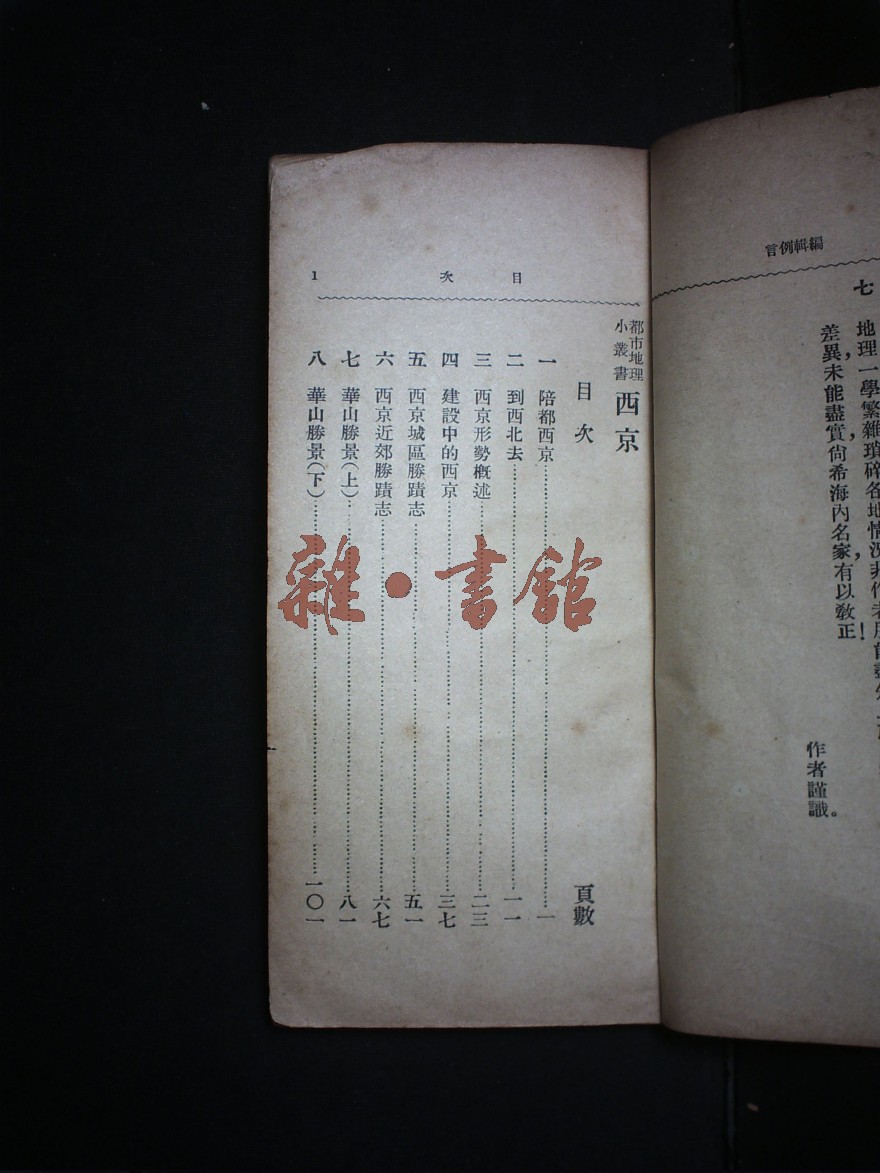 編輯例言
七
地理一學，繁雜瑣碎，各地情況，非作者所能盡
差異，未能盡實，尙希海內名家有以敎正！
作者謹識。
目次
1
都市地理小叢書 西京
目次
頁數
一 陪都西京 一
二 到西北去 一一
三 西京形勢概述 二三
四 建設中的西京 三七
五 西京城區勝蹟志 五一
六 西京近郊勝蹟志 六七
七 華山勝景（上） 八一
八 華山勝景（下） 一〇一
雜·書館